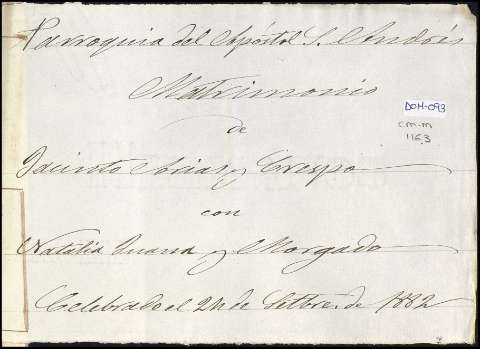 Parroquia del Apóstol S. Andrés
Matrimonio
DOH-093
C M-M
116.3
de
Jacinto Arias y Crespo
con
Natalia Juana y Morgado
Celebrado el 24 de Setbre. de 1882